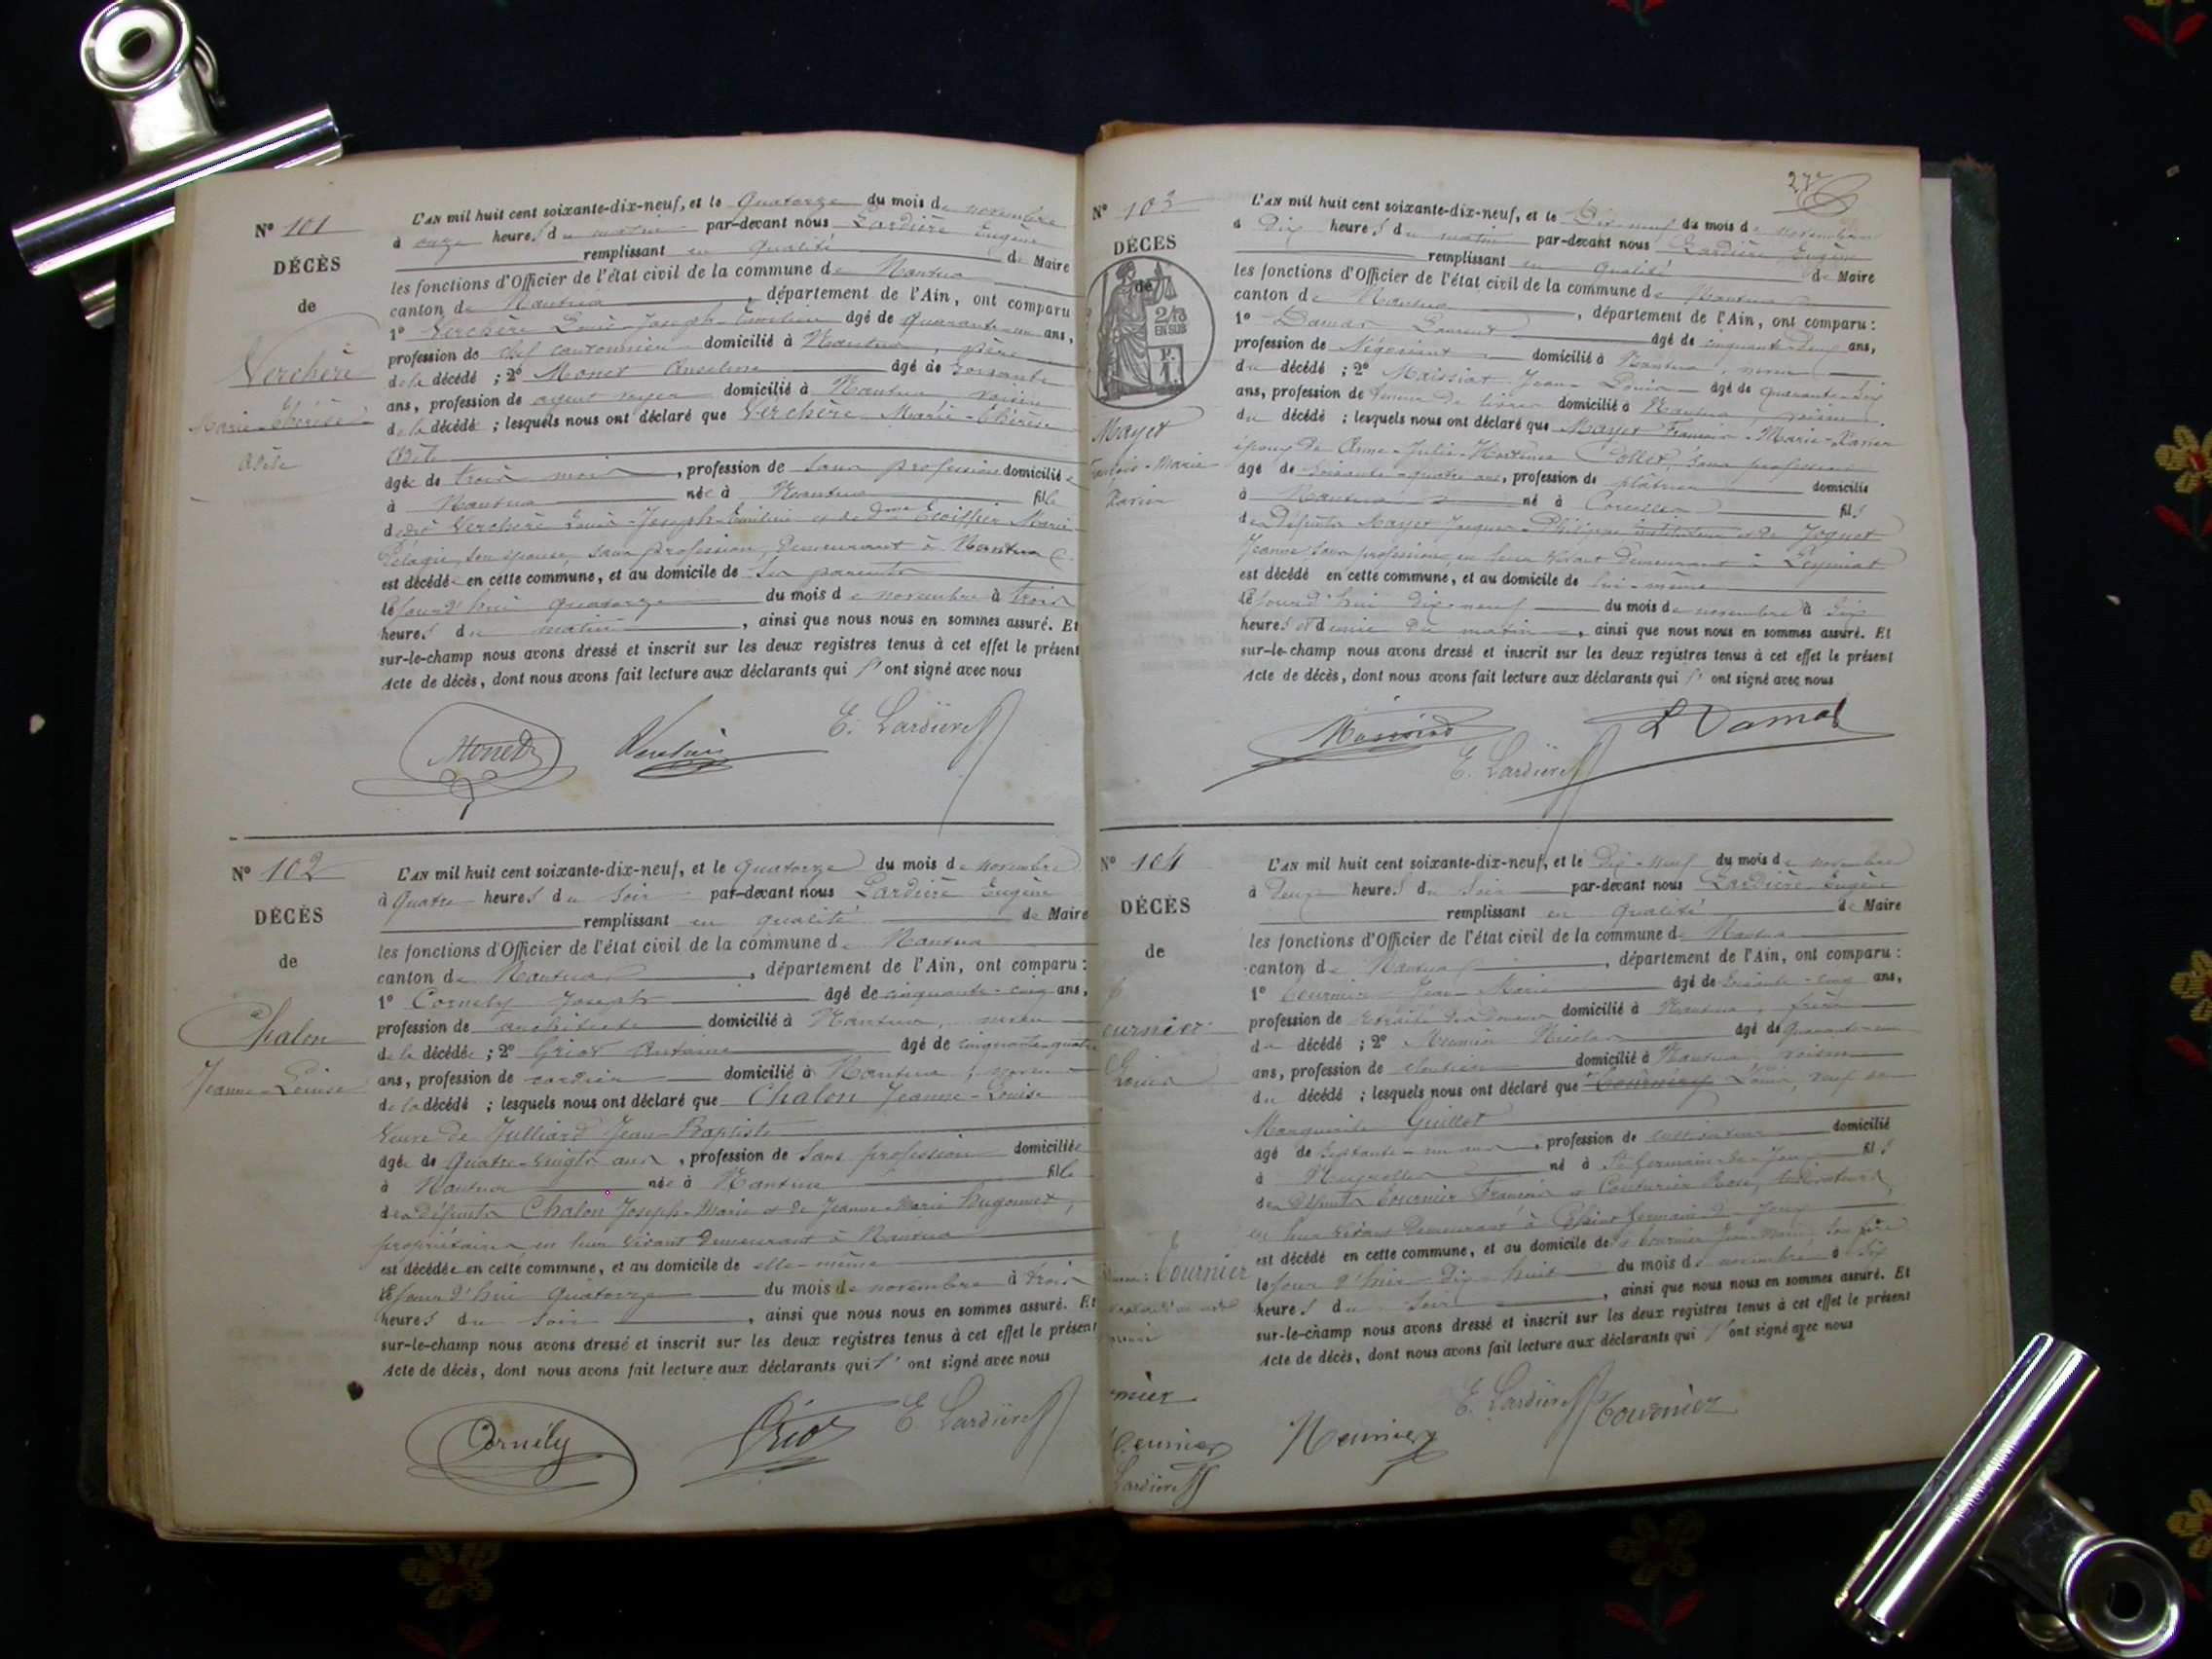 N° 101
DÉCÈS
de
Verchère
Marie-Thérèse
Adèle
L'AN mil huit cent soixante-dix-neuf, et le Quatorze du mois de novembre
à onze heures du matin par-devant nous Lardière Eugène
remplissant en qualité de Maire
les fonctions d'Officier de l'état civil de la commune de Nantua
canton de Nantua, département de l'Ain, ont comparu
1° Verchère Louis-Joseph-Emilien âgé de quarante-un ans,
profession de chef cantonnier domicilié à Nantua, père
de la décédé ; 2° Monet Anselme âgé de soixante
ans, profession de agent voyer domicilié à Nantua voisin
de la décédé ; lesquels nous ont déclaré que Verchère Marie-Thérèse
Adèle
âgée de trois mois, profession de sans profession domicilié
à Nantua née à Nantua fille
de Verchère Louis-Joseph-Emilien et de Dme Marie
Pélagie, son épouse, sans profession, demeurant à Nantua
est décédé en cette commune, et au domicile de ses parents
le jourd'hui quatorze du mois de novembre à trois
heures du matin, ainsi que nous nous en sommes assuré. Et
sur-le-champ nous avons dressé et inscrit sur les deux registres tenus à cet effet le présent
Acte de décès, dont nous avons fait lecture aux déclarants qui l'ont signé avec nous
Monet E. Lardière
N° 102
DÉCÈS
de
Chalon
Jeanne-Louise
L'AN mil huit cent soixante-dix-neuf, et le quatorze du mois de novembre
à Quatre heures du soir par-devant nous Lardière Eugène
remplissant en qualité de Maire
les fonctions d'Officier de l'état civil de la commune de Nantua
canton de Nantua, département de l'Ain, ont comparu :
1° Cornely Joseph âgé de cinquante-cinq ans,
profession de architecte domicilié à Nantua, neveu
de la décédée ; 2° Griot Antoine âgé de cinquante-quatre
ans, profession de cordier domicilié à Nantua,
de la décédé ; lesquels nous ont déclaré que Chalon Jeanne-Louise
veuve de Julliard Jean-Baptiste
âgée de Quatre-vingts ans, profession de sans profession domiciliée
à Nantua née à Nantua fille
des défunts Chalon Joseph-Marie et de Jeanne-Marie Hugonnet,
propriétaires en leur vivant demeurant à Nantua
est décédée en cette commune, et au domicile de elle-même
le jourd'hui quatorze du mois de novembre à trois
heures du soir, ainsi que nous nous en sommes assuré. Et
sur-le-champ nous avons dressé et inscrit sur les deux registres tenus à cet effet le présent
Acte de décès, dont nous avons fait lecture aux déclarants qui l'ont signé avec nous
Cornély Griot E. Lardière
27
N° 103
DÉCÈS
de
2/10
EN SUS
Mayet
Marie
Xavier
L'AN mil huit cent soixante-dix-neuf, et le Dix-neuf du mois de novembre
à Dix heures du matin par-devant nous Lardière Eugène
remplissant en qualité de Maire
les fonctions d'Officier de l'état civil de la commune de Nantua
canton de Nantua, département de l'Ain, ont comparu :
1° Damas Laurent âgé de cinquante-deux ans,
profession de Négociant domicilié à Nantua, neveu
du décédé ; 2° Maissiat Jean-Louis âgé de quarante-six
ans, profession de teneur de livres domicilié à Nantua, voisin
du décédé ; lesquels nous ont déclaré que Mayet François-Marie-Xavier
époux de Anne-Julie-Hortense Collet, sans profession
âgé de soixante-quatre ans, profession de plâtrier domicilié
à Nantua né à fils
des défunts Mayet Jacques-Philippe instituteur et de Joguet
Jeanne, sans profession, en leur vivant demeurant à Leyssiat
est décédé en cette commune, et au domicile de lui-même
le jourd'hui dix-neuf du mois de novembre à Six
heures et demie du matin, ainsi que nous nous en sommes assuré. Et
sur-le-champ nous avons dressé et inscrit sur les deux registres tenus à cet effet le présent
Acte de décès, dont nous avons fait lecture aux déclarants qui l'ont signé avec nous
Maissiat L Damas
E. Lardière
N° 104
DÉCÈS
de
ournier
Louis
L'AN mil huit cent soixante-dix-neuf, et le Dix-neuf du mois de novembre
à Deux heures du soir par-devant nous Lardière Eugène
remplissant en qualité de Maire
les fonctions d'Officier de l'état civil de la commune de Nantua
canton de Nantua, département de l'Ain, ont comparu :
1° Tournier Jean-Marie âgé de soixante-cinq ans,
profession de retraité des Douanes domicilié à Nantua, frère
du décédé ; 2° Meunier Nicolas âgé de quarante-un
ans, profession de domicilié à Nantua voisin
du décédé ; lesquels nous ont déclaré que Tournier Louis, veuf de
Marguerite Guillot
âgé de septante-un ans, profession de cultivateur domicilié
à Neyrolles né à St Germain-de-Joux fils
des défunts Tournier François et Couturier Rose, cultivateurs,
en leur vivant demeurant à Saint Germain-de-Joux
est décédé en cette commune, et au domicile de Tournier Jean-Marie, son frère
le jour d'hier dix-huit du mois de novembre à Six
heures du soir, ainsi que nous nous en sommes assuré. Et
sur-le-champ nous avons dressé et inscrit sur les deux registres tenus à cet effet le présent
Acte de décès, dont nous avons fait lecture aux déclarants qui l'ont signé avec nous
Tournier
Meunier E. Lardière Tournier
Meunier
Lardière